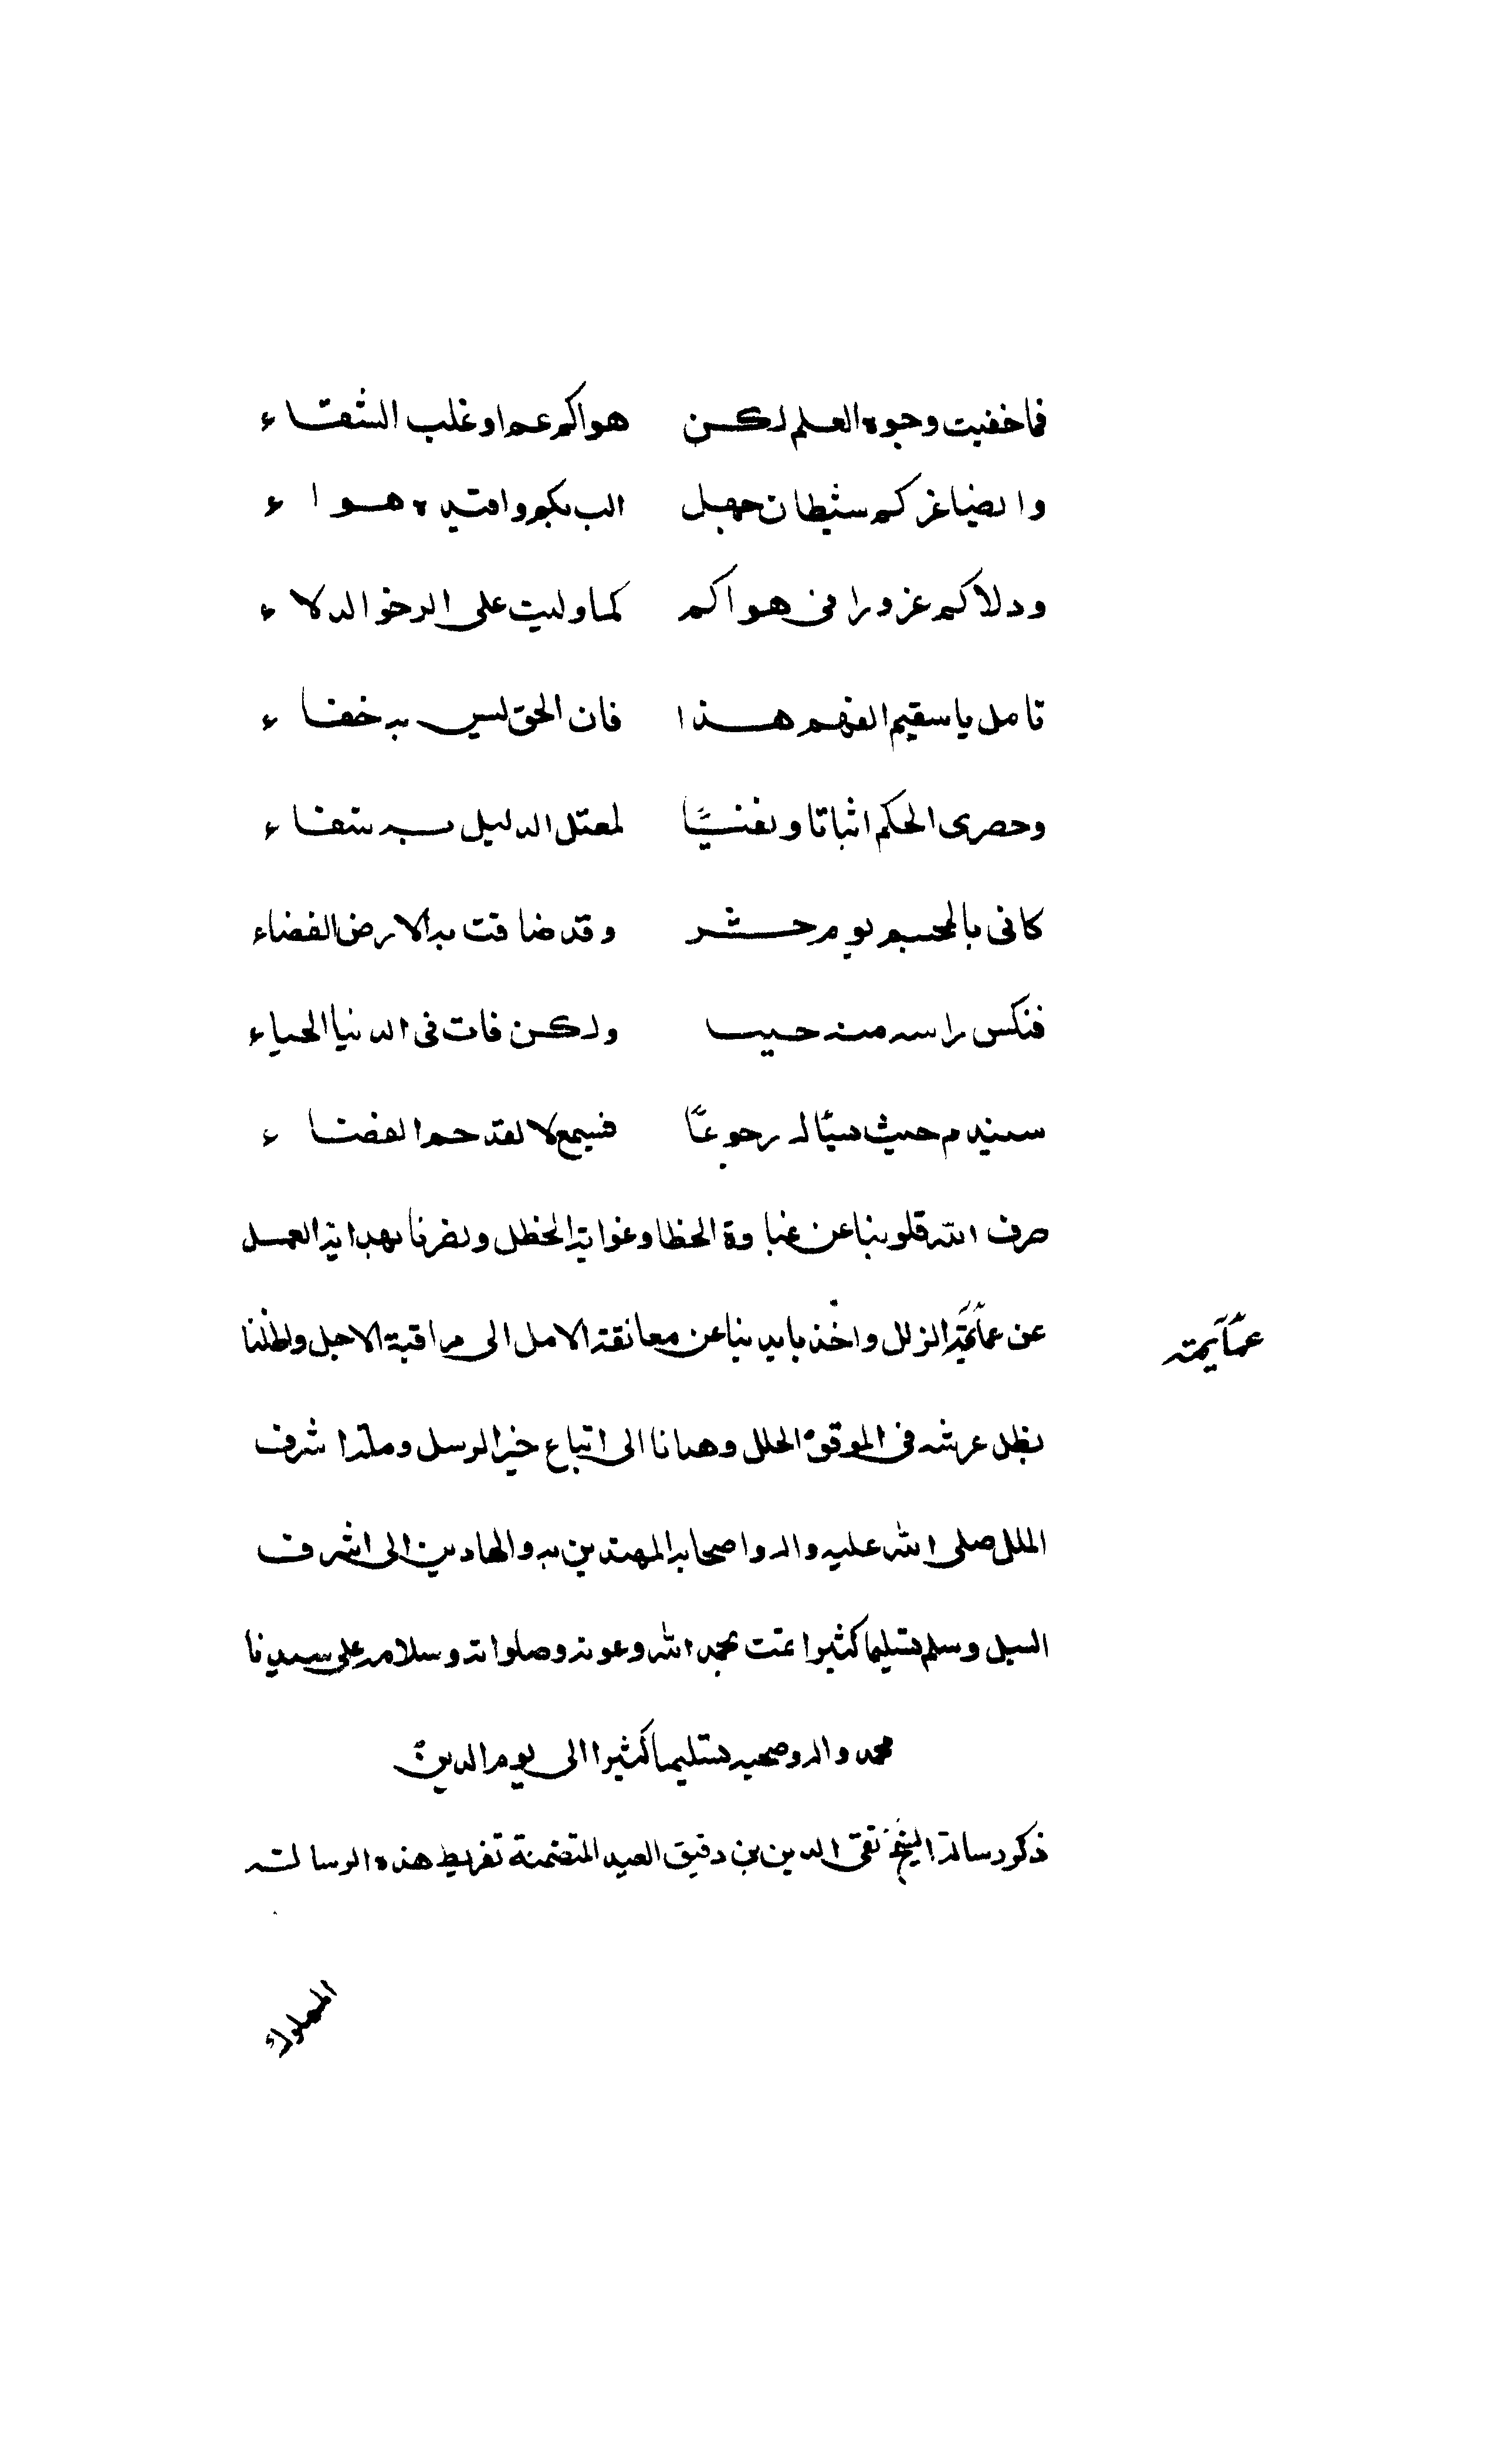 فما خفيت وجوه العلم لكن هواكم عم او غلب الشقاء
وايضا غركم شيطان جهل الب بكم واقتيده هواء
ودلاكم غرورا في هواكم كما وليت على الرخو الدلاء
تامل يا سقيم الفهم هذا فان الحق ليس به خفاء
وحصرى الحكم اثباتا ونفيًا لمعتل الدليل به شفاء
كانى بالمجسم يوم حشر وقد ضاقت به الارض الفضاء
فنكس راسه منه حيا ولكن فات فى الدنيا الحياء
سيندم حيث يسال رجوعًا فيسمع لا لقد حم القضاء
صرف الله قلوبنا عن غباوة الخطا وغواية الخطل وبصرنا بهداية العمل
عن عماية الزلل واخذ بايدينا عن معانقة الامل الى مراقبة الاجل واظلنا
بظل عرشه فى الموقف الجلل وهدانا الى اتباع خير الرسل وملته اشرف
الملل صلى الله عليه واله واصحابه المهتدين به والهادين الى اشرف
السبل وسلم تسليما كثيرا تمت بحمد الله وعونه وصلواته وسلامه على سيدنا
محمد واله وصحبه تسليما كثيرا الى يوم الدين
ذكر رسالة الشيخ تقى الدين بن دقيق العيد المتضمنة تقريظ هذه الرسالة
المملوك